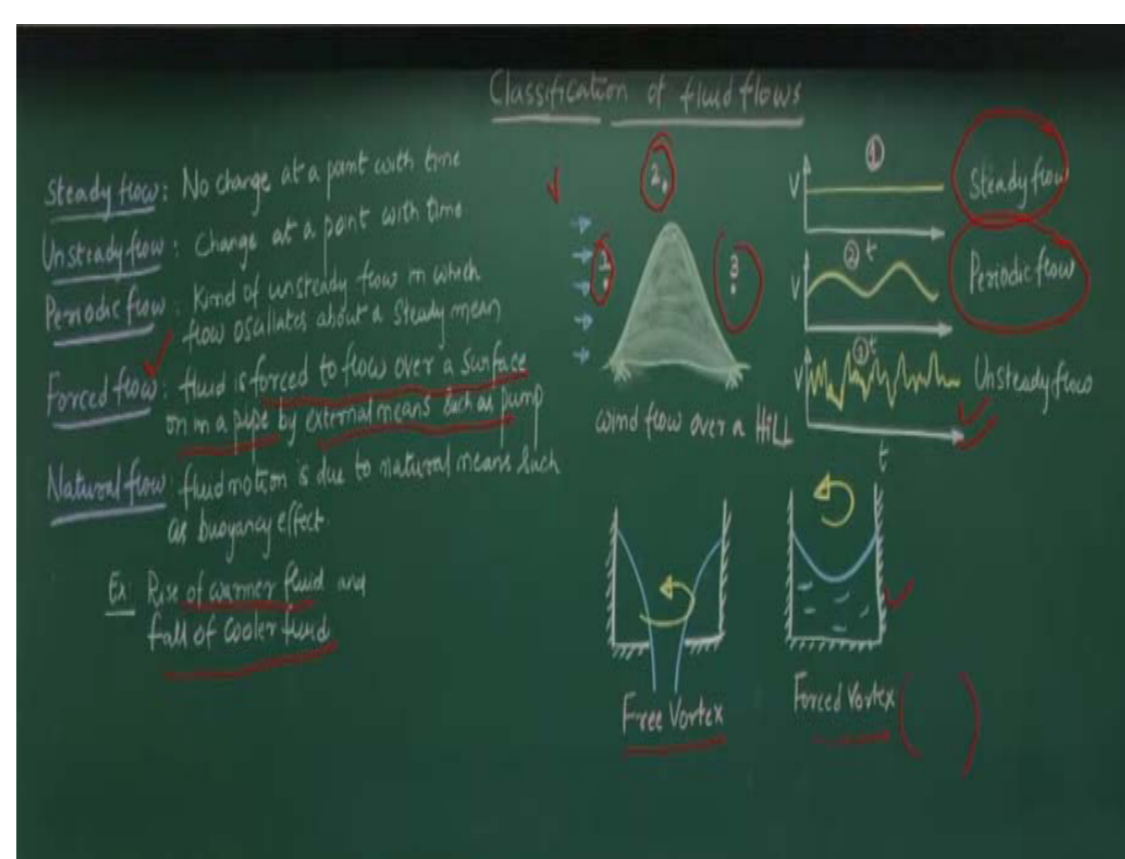 Classification of fluid flows
Steady flow: No change at a point with time
Unsteady flow: Change at a point with time
Periodic flow: Kind of unsteady flow in which
flow oscillates about a steady mean
Forced flow: fluid is forced to flow over a surface
or in a pipe by external means such as pump
Natural flow: fluid motion is due to natural means such
as buoyancy effect.
Ex: Rise of warmer fluid and
fall of cooler fluid
1
2
3
wind flow over a HiLL
1
V
t
Steady flow
2
V
t
Periodic flow
3
V
t
Unsteady flow
Free Vortex
Forced Vortex